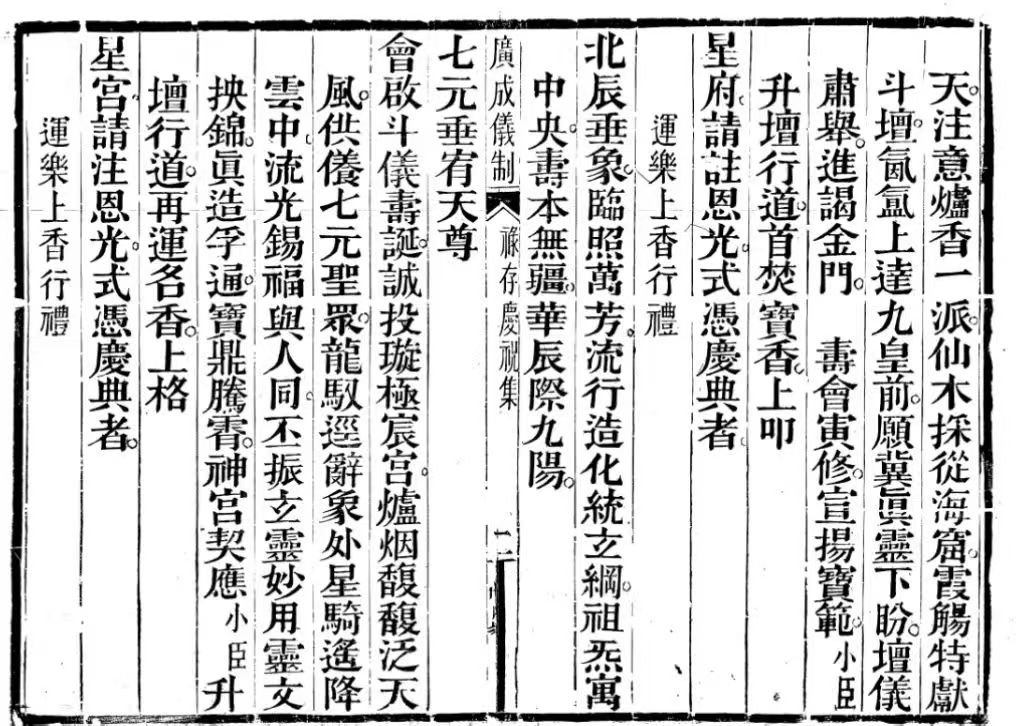 天。注意爐香一派。仙木採從海窟。霞觴特獻
斗壇。氤氳上達九皇前。願冀眞靈下盼。壇儀
肅舉。進謁金門。壽會寅修。宣揚寶範。小臣
升壇行道。首焚寶香。上叩
星府。請註恩光。式憑慶典者。
運樂上香行禮
北辰垂象。臨照萬芳。流行造化統玄綱。祖炁寓
中央。壽本無疆。華辰際九陽。
廣成儀制 祿存慶祝集 二
七元垂宥天尊
會啟斗儀壽誕。誠投璇極宸宮。爐烟馥馥泛天
風。供儀七元聖眾。龍馭逕辭象外。星騎遙降
雲中。流光錫福與人同。丕振玄靈妙用。靈文
抰錦。眞造孚通。寶鼎騰霄。神宮契應。小臣升
壇行道。再運名香。上格
星宮。請注恩光。式憑慶典者。
運樂上香行禮